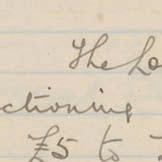 The
ctioning
£5 to